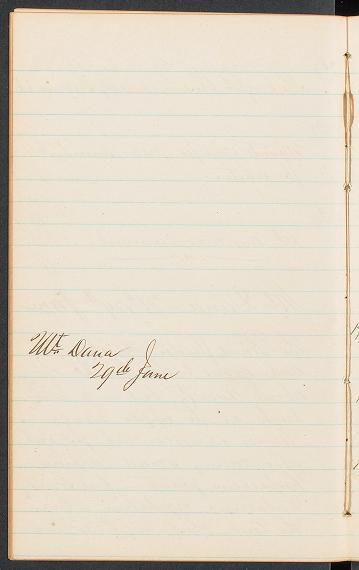 Mt. Dana
29th June